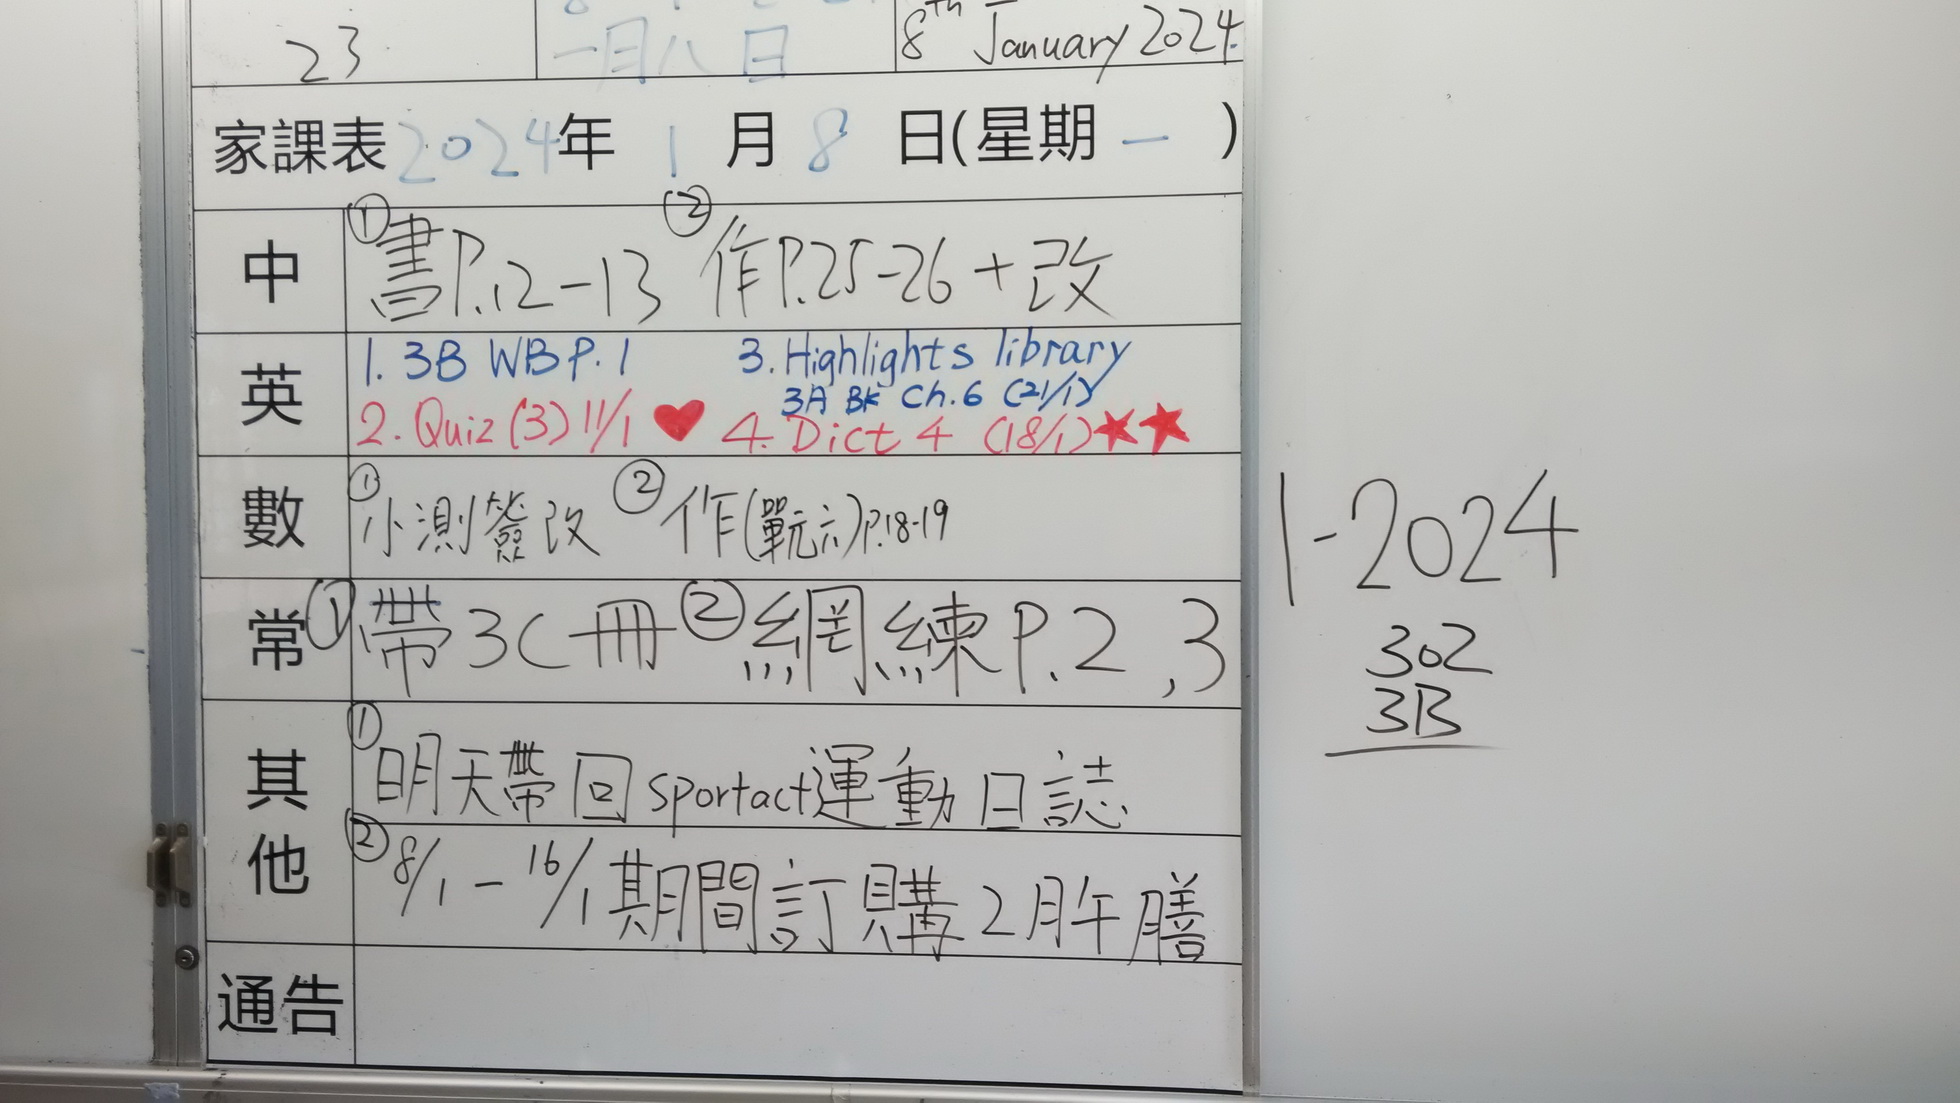 23
一月八日
8th January 2024.
家課表 2024年 1 月 8 日(星期一)
中
①書P.12-13 ②作P.25-26+改
英
1. 3B WB P.1
3. Highlights library
3A BK Ch.6 (21/1)
2. Quiz (3) 11/1 ♥
4. Dict 4 (18/1)★★
數
①小測簽改 ②作(單元六)P.18-19
常
①帶3C冊 ②網練P.2,3
其他
①明天帶回sportact運動日誌
②8/1-16/1期間訂購2月午膳
通告
1-2024
302
3B